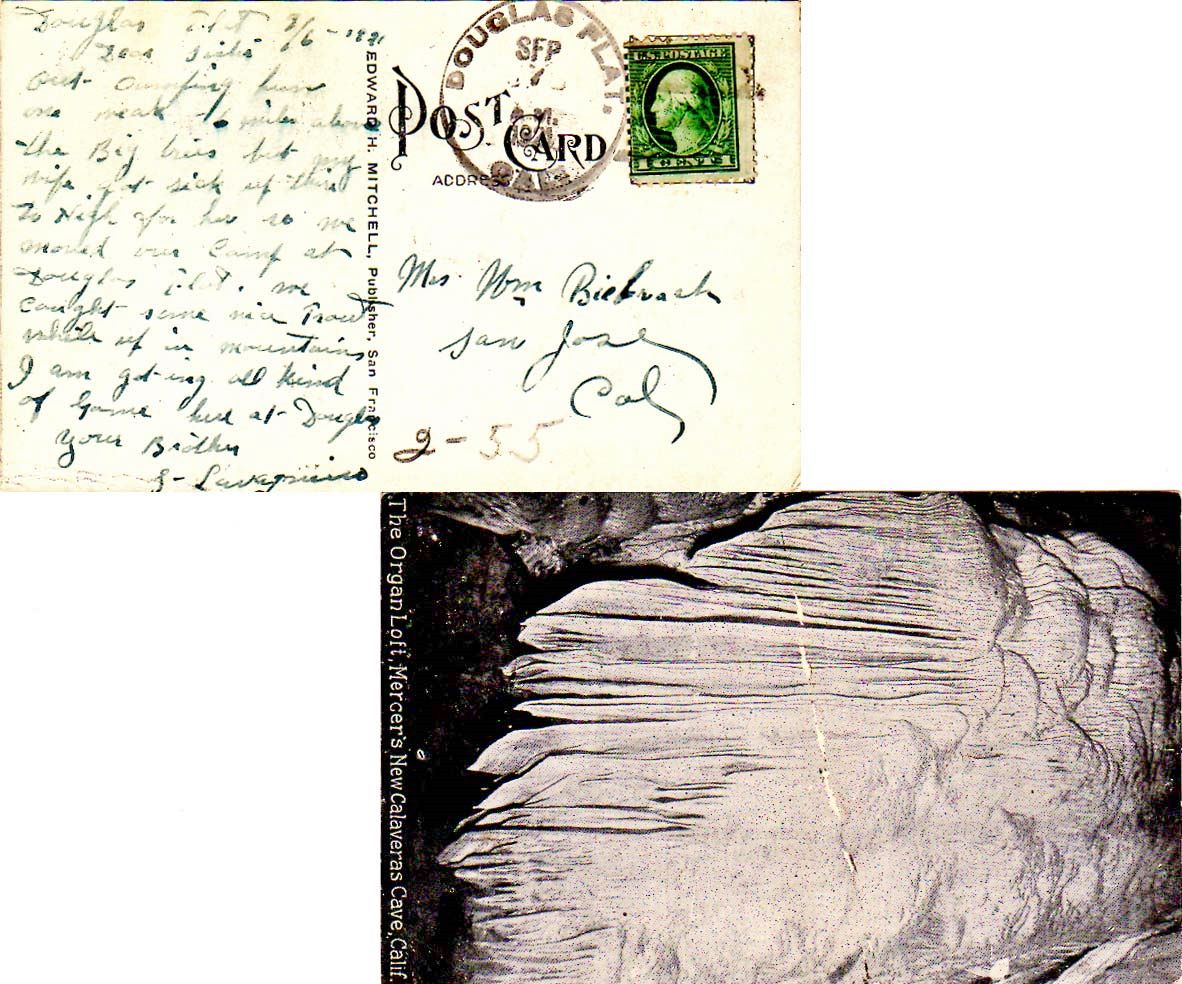 Douglas Flat 9/6 -
Dear Sister
out Camping here
one week 6 miles above
the Big trees but my
wife got sick up there
To High for her so we
moved our Camp at
Douglas Flat. we
caught some nice Trout
while up in mountains
I am got-ing all kind
of Game here at Douglas
your Brother
EDWARD H. MITCHELL, Publisher, San Francisco
DOUGLAS FLAT.
SEP
CAL.
POST CARD
ADDRESS
U.S. POSTAGE
1 CENT
Mrs Wm
San Jose
Cal
2-55
The Organ Loft, Mercer's New Calaveras Cave, Calif.